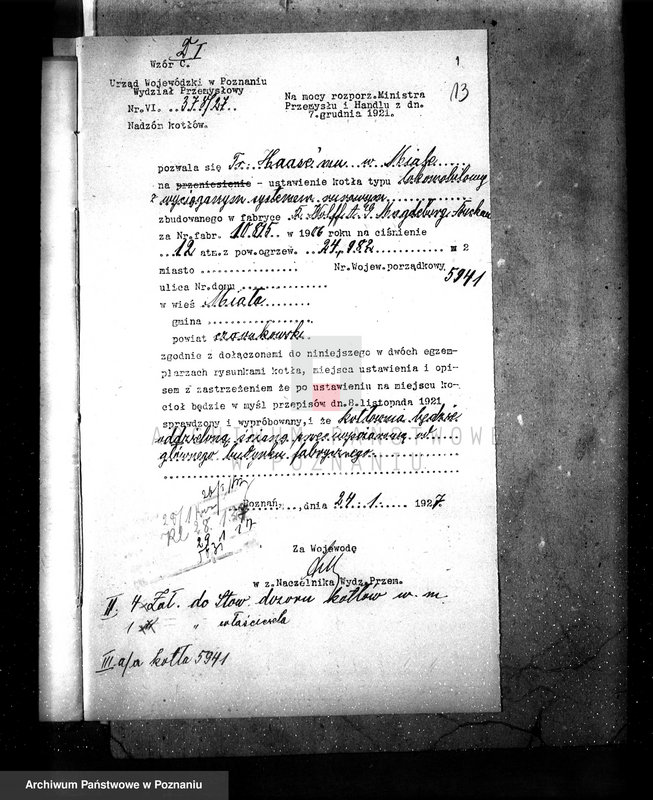 D I
Wzór C.
1
13
Urząd Wojewódzki w Poznaniu
Wydział Przemysłowy
Nr.VI. ..378/27..
Nadzór kotłów.
Na mocy rozporz.Ministra
Przemysłu i Handlu z dn.
7.grudnia 1921.
pozwala się Fr. Haase'mu w Miale
na przeniesienie - ustawienie kotła typu lokomobilowy
z wyciąganym systemem rurowym
zbudowanego w fabryce F. Wolff A. G. Magdeburg-Buckau
za Nr.fabr. 10.815 w 1916 roku na ciśnienie
..12 atm.z pow.ogrzew. 24,982 m 2
miasto
Nr.Wojew.porządkowy
5941
ulica Nr.domu
w wieś Miała
gmina
powiat czarnkowski
zgodnie z dołączonemi do niniejszego w dwóch egzem-
plarzach rysunkami kotła, miejsca ustawienia i opi-
sem z zastrzeżeniem że po ustawieniu na miejscu ko-
cioł będzie w myśl przepisów dn.8.listopada 1921
sprawdzony i wypróbowany,i że kotłownia będzie
oddzielona ścianą od
głównego budynku fabrycznego.
ARCHIWUM PAŃSTWOWE
W POZNANIU
Poznań.,dnia 24.1. 1927.
Za Wojewodę
w z.Naczelnika Wydz.Przem.
II 4 Zał. do Stow. dozoru kotłów w. m
1 " właściciela
III a/a kotła 5941
Archiwum Państwowe w Poznaniu